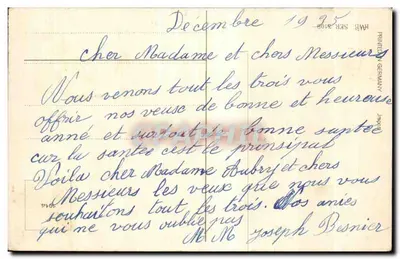 Décembre 1925
cher Madame et chers Messieurs
Nous venons tout les trois vous
offrir nos veuse de bonne et heureuse
anné et surtout la bonne santée
car la santée c'est le prinsipal
Voila cher Madame Aubry et chers
Messieurs les veux que nous vous
souhaitons tout les trois. Vos amies
qui ne vous oublie pas
M M Joseph Besnier